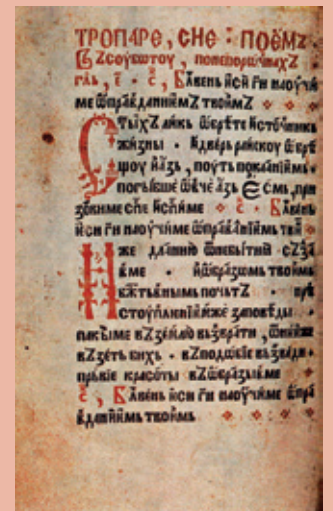 ТРОПАРЕ, СНЕ : ПОЕМꙀ
ВꙀ СОУБѠТОУ , ПОНЕПОРѠЧНАХꙀ
гль , г҃ · с҃ , Бл҃вень йси г҃и наоучи
ме ѿправданиимꙀ твоимꙀ
Ст҃ыхꙀ ликь ѿбрѣте источникь
жизны · Идверь раискоу ѿбрѣ
щоу ꙗзь , поуть покаꙗниймь ·
погыбше ѡвче азь Есмь , при
зовиме сп҃се йсп҃име · с҃ · Бл҃вень
йси г҃и наоучиме ѿправданиймь твй
Иже ꙋбо ѿнебытиꙗ сꙀзда
вме · йѡбразомь твоймь
бжт҃вьнымь почьтꙀ · прѣ
стоупленийже заповѣды
пакыме вꙀземлю вьзврати , ѿнюже
вꙀзеть бихь · вꙀподѡбіе вьзведи ·
прьвіе красоты вꙀѡбразыме
с҃ , Бл҃вень йси г҃и наоучиме ѿпра
вданиймь твоймь